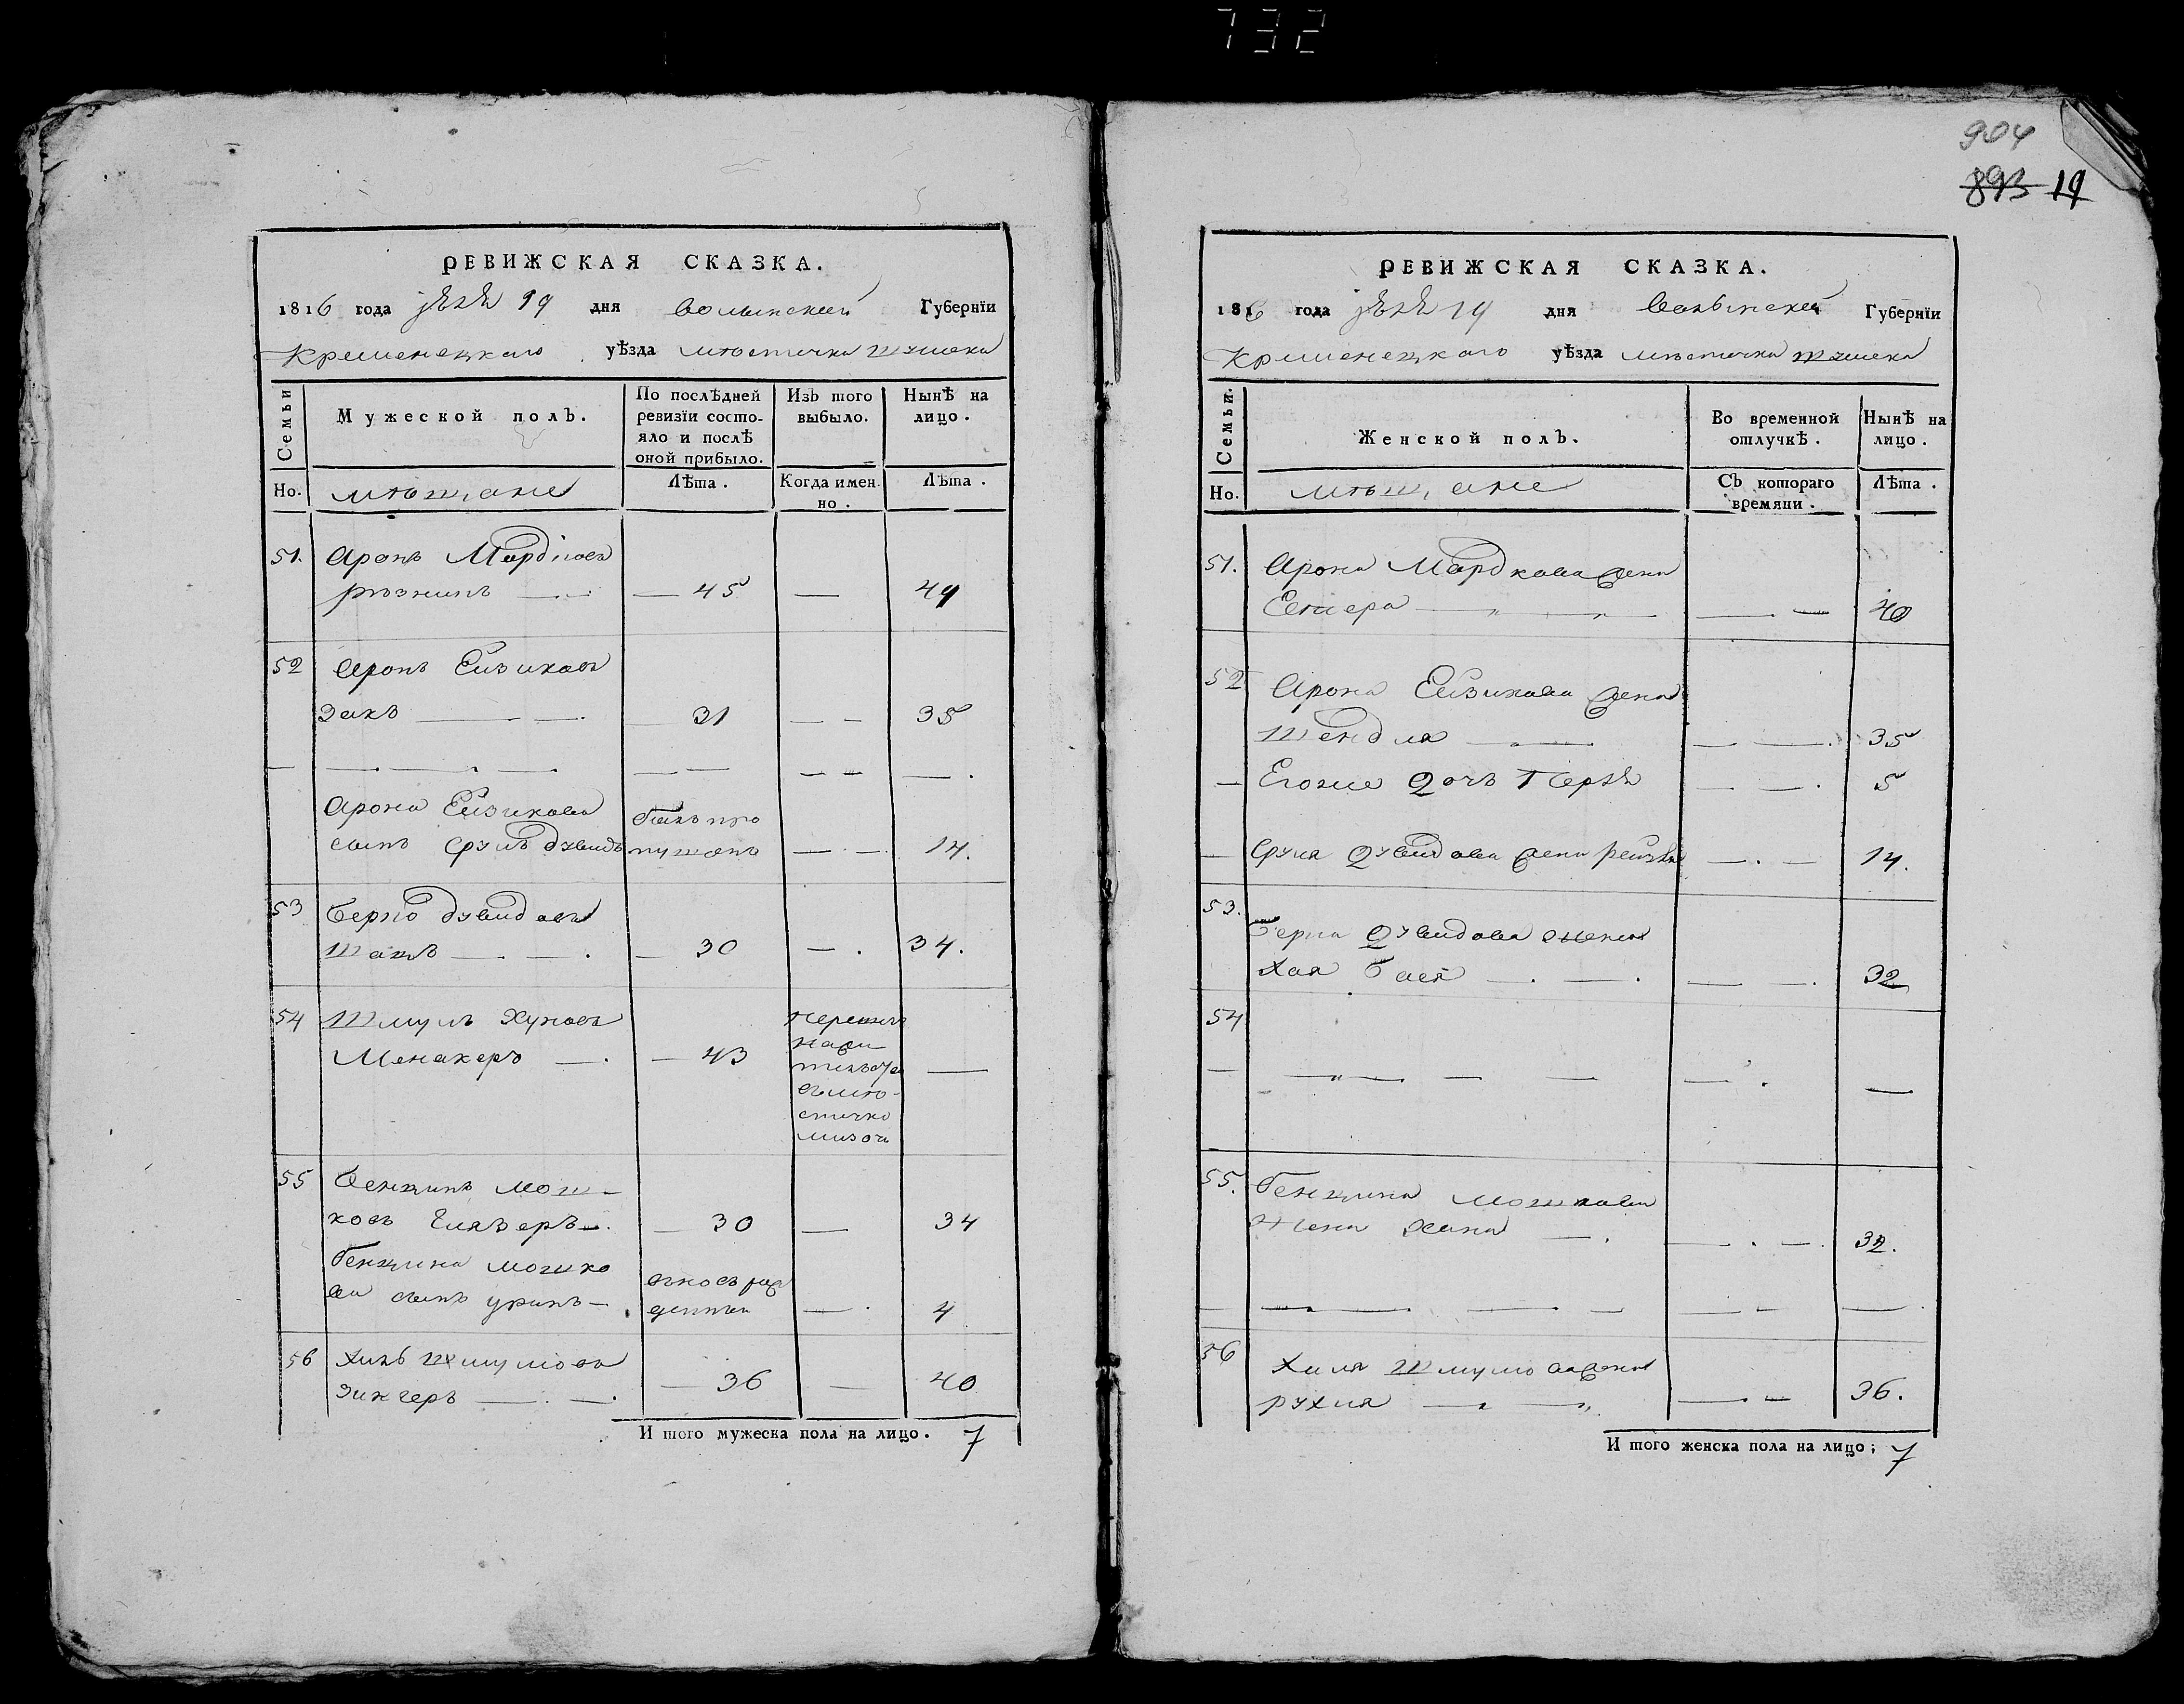 732
904
893 19
РЕВИЖСКАЯ СКАЗКА.
1816 года 19 дня Волынской Губернїи
Кременецкаго уѣзда мѣстечка Шумска
Семьи
Мужеской полъ.
По послѣдней ревизїи состояло и послѣ оной прибыло.
Изъ того выбыло.
Нынѣ на лицо.
Но. мѣщане
Лѣта.
Когда имен но.
Лѣта.
51. Аронъ Мордковъ
рѣзникъ — 45 — 49
52 Аронъ Ейзиковъ
Закъ — 31 — — 35
Арона Ейзикова былъ про
сынъ Сруль Дувидъ пущенъ — 14.
53 Берко Дувидовъ
Шацъ — 30 — 34.
54 Шмуль Хуновъ
Менакеръ — 43 —
мѣ-
стечко
Мизочь
55 Бенцинъ Мош-
ковъ Глязеръ — 30 — 34
Бенцина Мошко
ва сынъ — 4
56 Хиль Шмулiовъ
Зингеръ — 36 — 40
И того мужеска пола на лицо. 7
РЕВИЖСКАЯ СКАЗКА.
1816 года 19 дня Волынской Губернїи
Кременецкаго уѣзда мѣстечка Шумска
Семьи.
Женской полъ.
Во временной отлучкѣ.
Нынѣ на лицо.
Но. мѣщане
Съ котораго времяни.
Лѣта.
51. Арона Мордкова жена
— — 40
52 Арона Ейзикова жена
Шендля — — 35
— Егоже дочь Перля — 5
— Сруля Дувидова жена Рейзя — 14.
53. Берка Дувидова жена
Хая Бася — — 32
54
— — — —
55. Бенцина Мошкова
жена Хана — — 32.
56 Хиля Шмулiова жена
Рухля — — 36.
И того женска пола на лицо; 7